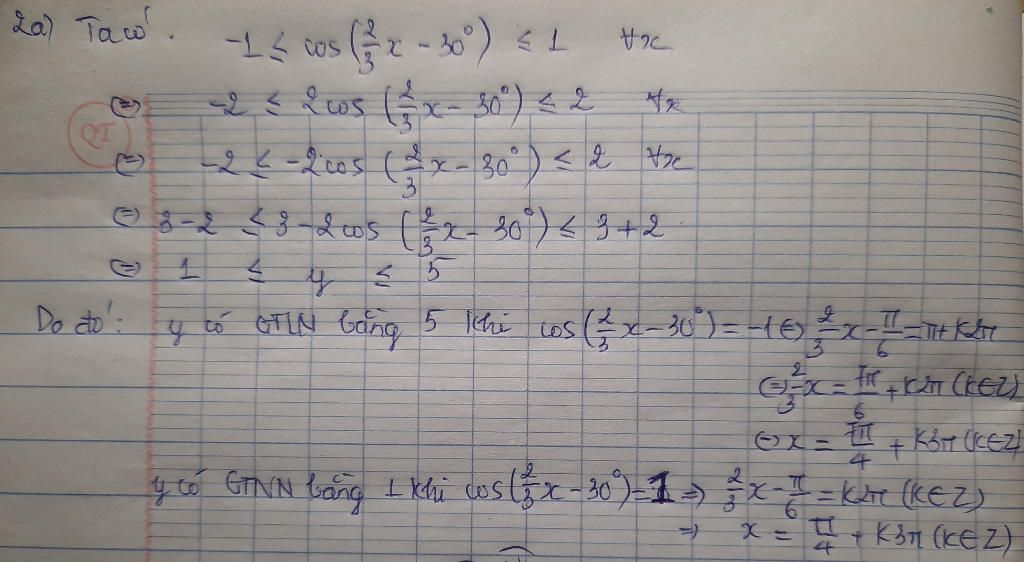 2a) Ta có: -1 ≤ cos(2/3 x - 30°) ≤ 1 ∀x
⇔ -2 ≤ 2cos(2/3 x - 30°) ≤ 2 ∀x
⇔ -2 ≤ -2cos(2/3 x - 30°) ≤ 2 ∀x
⇔ 3-2 ≤ 3-2cos(2/3 x - 30°) ≤ 3+2
⇔ 1 ≤ y ≤ 5
Do đó: y có GTLN bằng 5 khi cos(2/3 x - 30°) = -1 ⇔ 2/3 x - π/6 = π + k2π
⇔ 2/3 x = 7π/6 + k2π (k∈Z)
⇔ x = 7π/4 + k3π (k∈Z)
y có GTNN bằng 1 khi cos(2/3 x - 30°) = 1 ⇒ 2/3 x - π/6 = k2π (k∈Z)
⇒ x = π/4 + k3π (k∈Z)